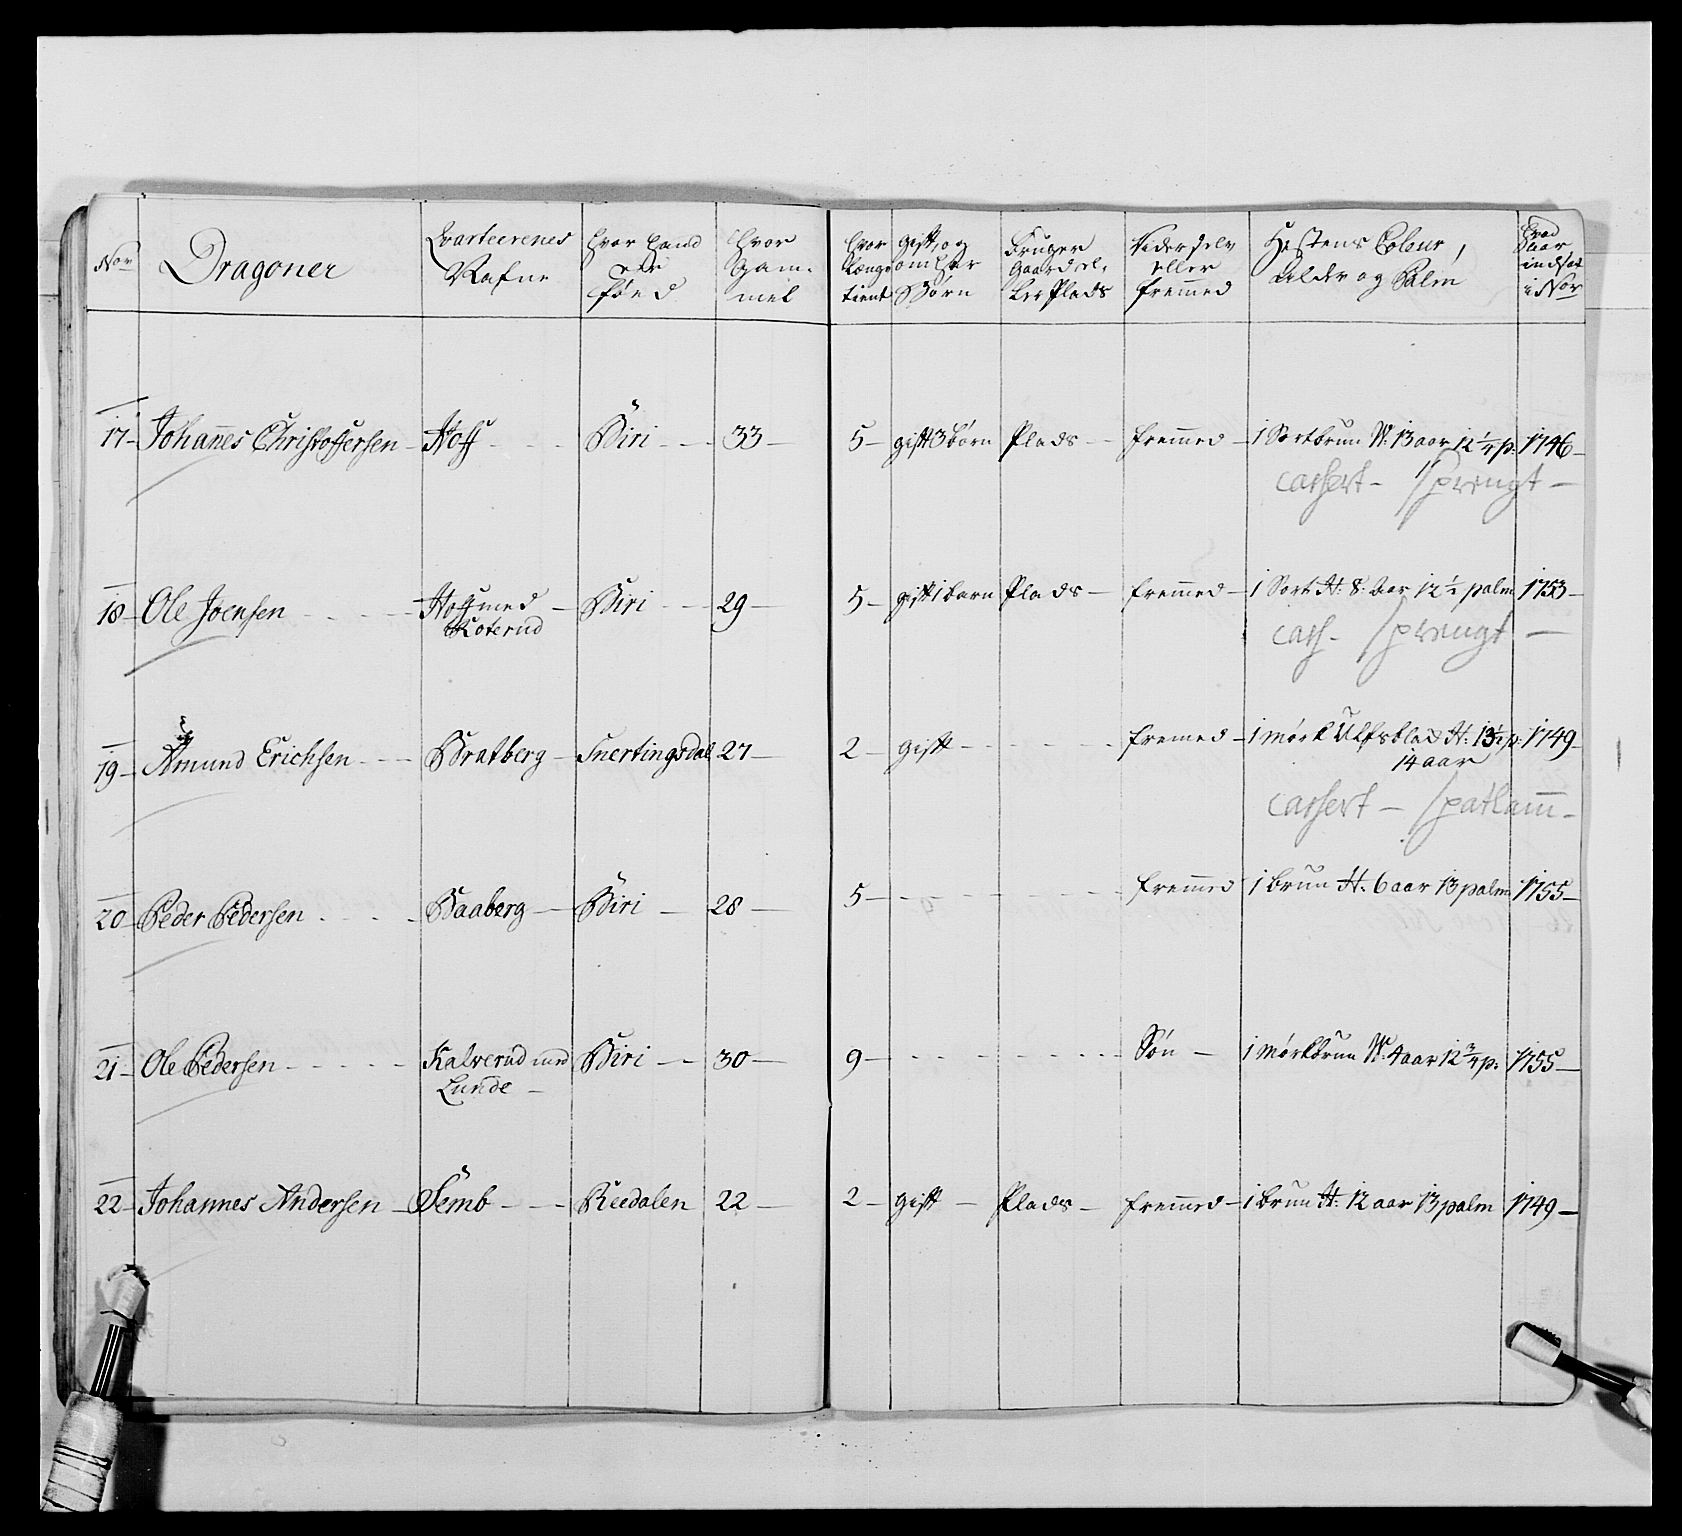 Nor Dragoner Qvarteerenes Nafne hvor hand ere föed hvor Gam- mel hvor længe tient gift, og om har Börn bruger Gaard el- ler Plads Viderselv eller fremmed Hestens Coleur, Alder og Palm hvad aar indsat i Nor
17 Johannes Christoffersen Hoff Biri 33 5 gift 3 börn Plads fremmed 1 Sortbrun W: 13 aar 12 1/4 p: 1746
cassert - Sprengt
18 Ole Joensen Hoff med Biri 29 5 gift 1 barn Plads fremmed 1 Sort H: 8: Aar 12 1/2 palm 1753
Koterud
cass. Sprengt
19 Amund Erichsen Bratberg Snertingsdal 27 2 gift fremed 1 mörk Ulfsblad H: 13 1/2 p: 1749
14 aar
cassert - Spatlam
20 Peder Pedersen Baaberg Biri 28 5 fremmed 1 brun H. 6 aar 13 palm 1755
21 Ole Pedersen Kalverud med Biri 30 9 Sön 1 mörkbrun W. 4 aar 12 3/4 p: 1755
Lunde
22 Johannes Andersen Semb Reedalen 22 2 gift Plads fremmed 1 brun H: 12 aar 13 palm 1749